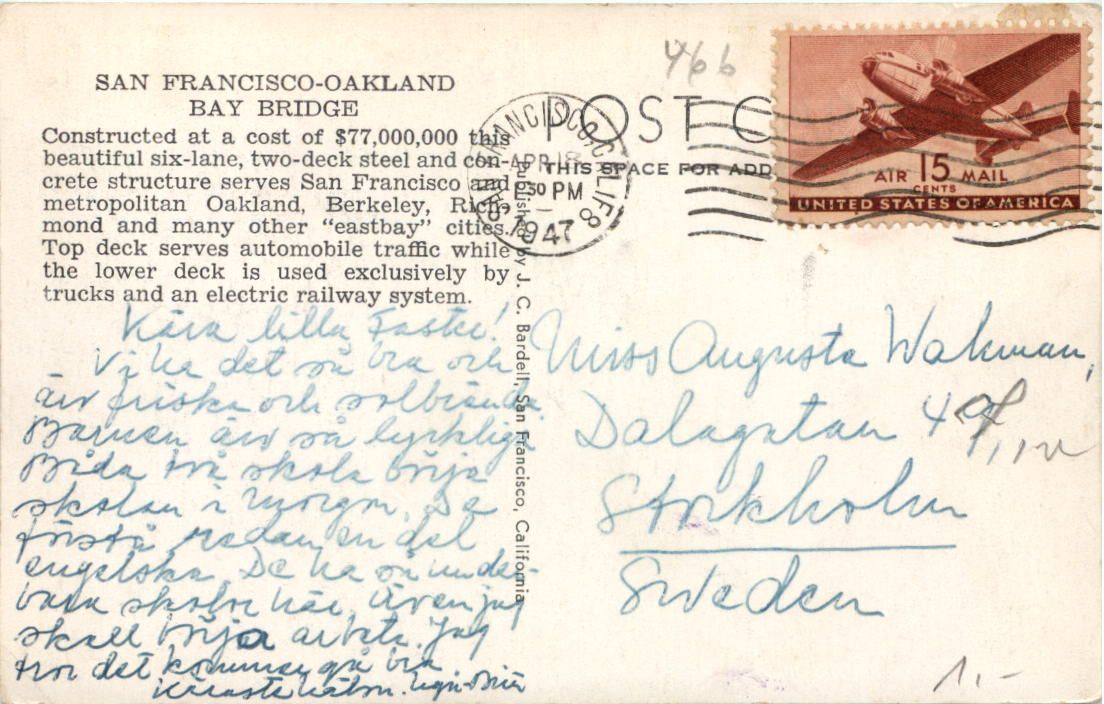 SAN FRANCISCO-OAKLAND
BAY BRIDGE
Constructed at a cost of $77,000,000 this
beautiful six-lane, two-deck steel and con-
crete structure serves San Francisco and
metropolitan Oakland, Berkeley, Rich-
mond and many other "eastbay" cities.
Top deck serves automobile traffic while
the lower deck is used exclusively by
trucks and an electric railway system.
Kära lilla Faster!
Vi ha det så bra och
är friska och solbrända.
Barnen är så lyckliga
Båda två skola börja
skolan i morgon. De
förstå redan en del
engelska. De ha så under-
bara skolor här. Även jag
skall börja arbeta. Jag
tror det kommer gå bra
Published by J. C. Bardell, San Francisco, California
466
POST C
THIS SPACE FOR ADD
SAN FRANCISCO, CALIF. 8
APR 18
30 PM
1947
AIR 15 MAIL
CENTS
UNITED STATES OF AMERICA
Miss Augusta Wakman,
Dalagatan
Stockholm
Sweden
1,-